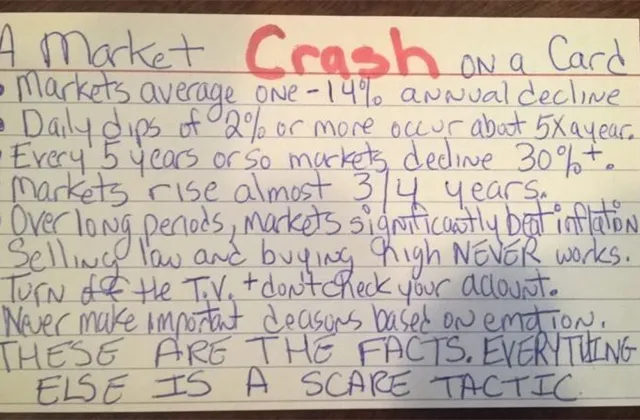 A Market Crash ON a Card
Markets average ONE -14% annual decline
Daily dips of 2% or more occur about 5X a year.
Every 5 years or so markets decline 30%+.
Markets rise almost 3/4 years.
Over long periods, markets significantly beat inflation
Selling low and buying high NEVER works.
Turn off the T.V. + don't check your account.
Never make important decisons based on emotion.
THESE ARE THE FACTS. EVERYTHING
ELSE IS A SCARE TACTIC